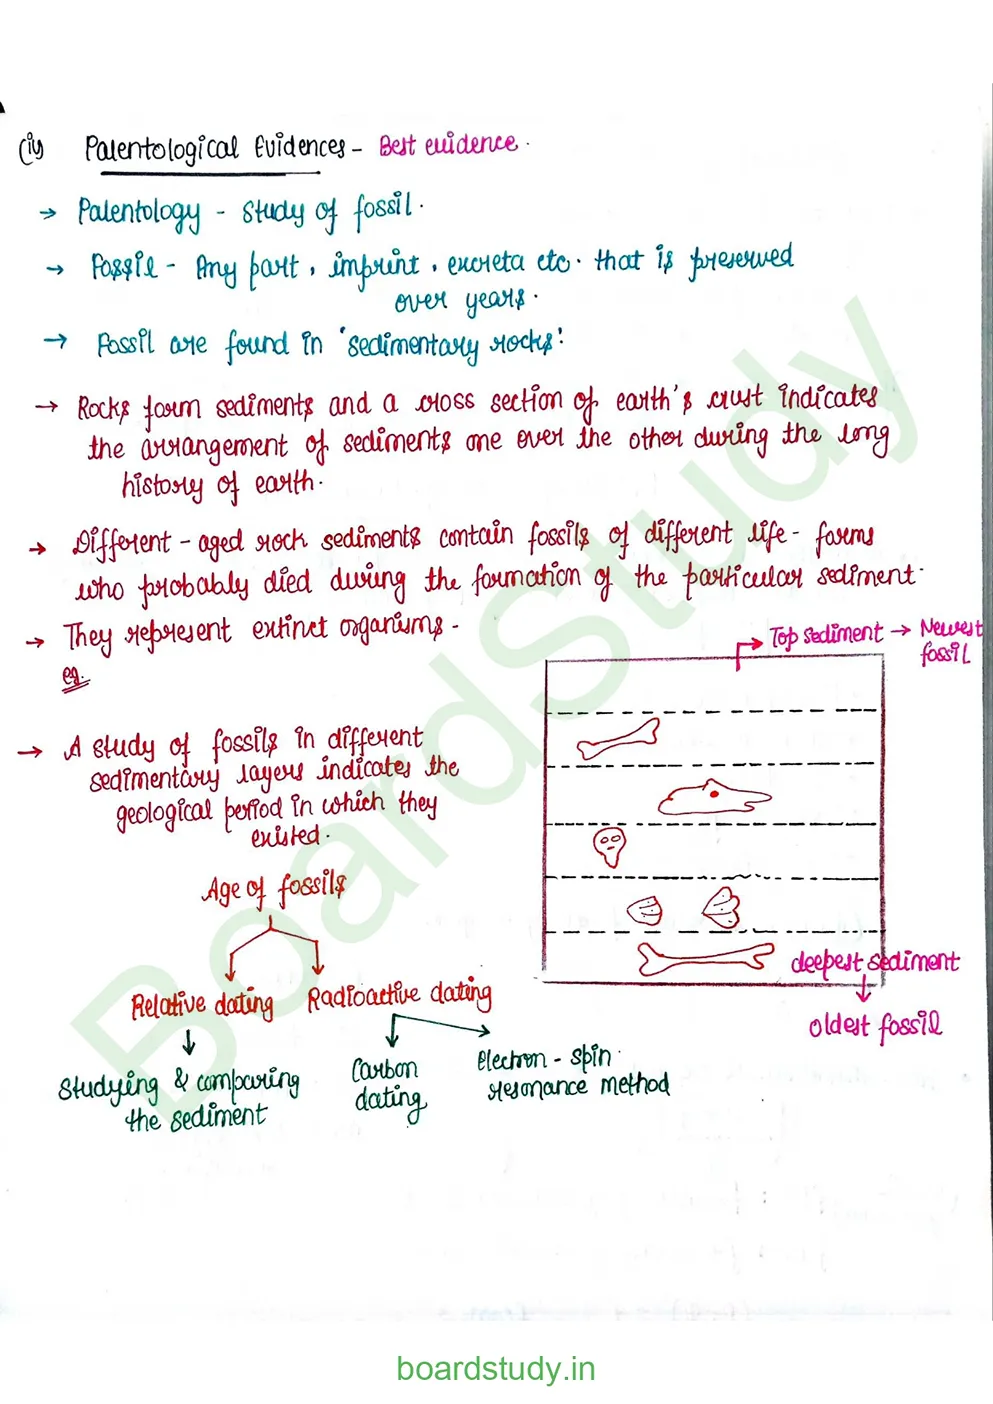 (iv) Palentological Evidences - Best evidence.
→ Palentology - study of fossil.
→ Fossil - Any part, imprint, excreta etc. that is preserved
over years.
→ Fossil are found in 'sedimentary rocks'.
→ Rocks form sediments and a cross section of earth's crust indicates
the arrangement of sediments one over the other during the long
history of earth.
→ Different - aged rock sediments contain fossils of different life - forms
who probably died during the formation of the particular sediment.
→ They represent extinct organisms -
eg.
Top sediment → Newest
fossil
→ A study of fossils in different
sedimentary layers indicates the
geological period in which they
existed.
deepest sediment
↓
oldest fossil
Age of fossils
Relative dating
Radioactive dating
↓
studying & comparing
the sediment
Carbon
dating
electron - spin
resonance method
BoardStudy
boardstudy.in